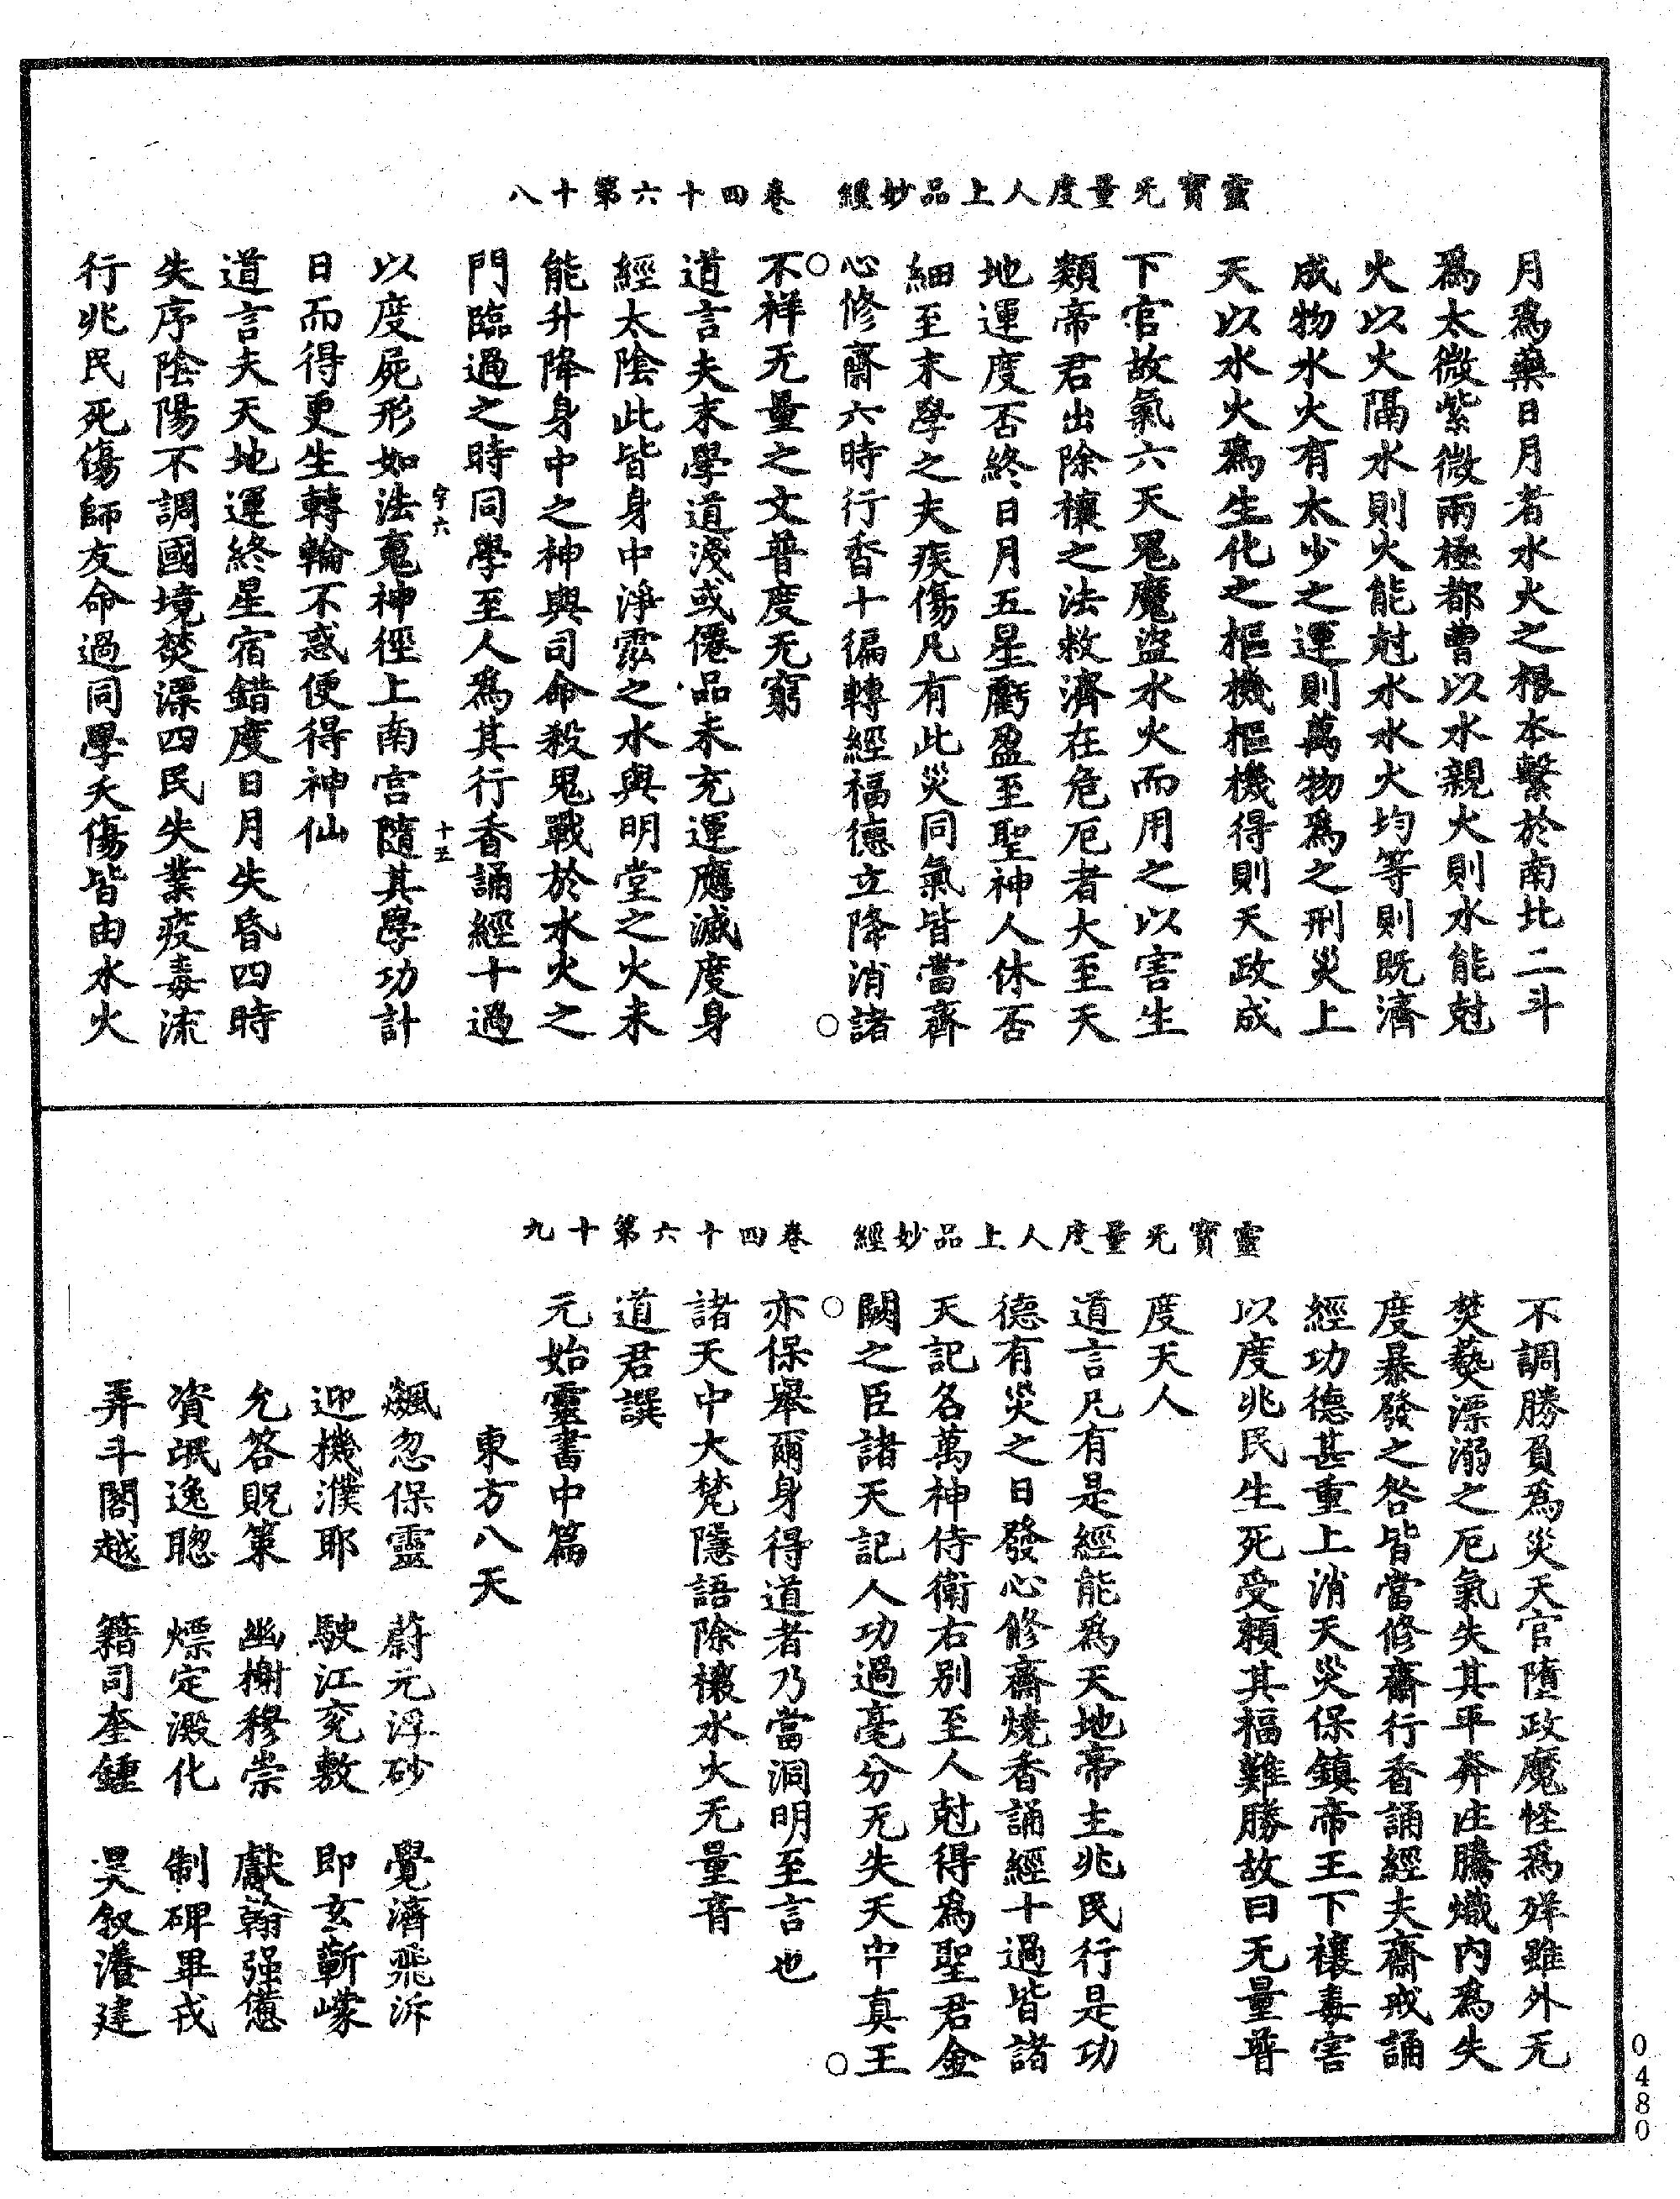 靈寶无量度人上品妙經　卷四十六第十八
月爲藥日月者水火之根本繫於南北二斗
爲太微紫微兩極都曹以水親火則水能尅
火以火隔水則火能尅水水火均等則既濟
成物水火有太少之運則萬物爲之刑災上
天以水火爲生化之樞機樞機得則天政成
下官故氣六天鬼魔盜水火而用之以害生
類帝君出除禳之法救濟在危厄者大至天
地運度否終日月五星虧盈至聖神人休否
細至末學之夫疾傷凡有此災同氣皆當齊
心修齋六時行香十徧轉經福德立降消諸
不祥无量之文普度无窮
道言夫末學道淺或僊品未充運應滅度身
經太陰此皆身中淨㳒之水與明堂之火未
能升降身中之神與司命殺鬼戰於水火之
門臨過之時同學至人爲其行香誦經十過
字六　十五
以度屍形如法䰟神徑上南宮隨其學功計
日而得更生轉輪不惑便得神仙
道言夫天地運終星宿錯度日月失昏四時
失序陰陽不調國境焚漂四民失業疫毒流
行兆民死傷師友命過同學夭傷皆由水火
靈寶无量度人上品妙經　卷四十六第十九
不調勝負爲災天官墮政魔怪爲殃雖外无
焚爇漂溺之厄氣失其平奔注騰熾內爲失
度暴發之咎皆當修齋行香誦經夫齋戒誦
經功德甚重上消天災保鎮帝王下禳毒害
以度兆民生死受賴其福難勝故曰无量普
度天人
道言凡有是經能爲天地帝主兆民行是功
德有災之日發心修齋燒香誦經十過皆諸
天記名萬神侍衛右別至人尅得爲聖君金
闕之臣諸天記人功過毫分无失天中真王
亦保舉爾身得道者乃當洞明至言也
諸天中大梵隱語除禳水火无量音
道君譔
元始靈書中篇
東方八天
飊忽保靈　蔚元浮砂　覺濟飛泝
迎機濮耶　駛江兖敷　即玄蘄嶸
允答貺策　幽榭穆崇　獻翰强憊
資氓逸聰　熛定澱化　制碑畢戎
弄斗閣越　籍司奎鍾　昊叙瀋建
0480